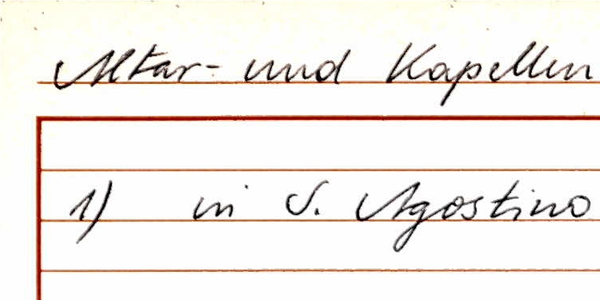 Altar- und Kapellen
1) in S. Agostino